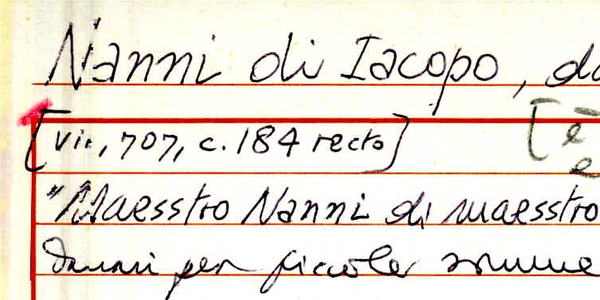 Nanni di Iacopo, da
[VII, 707, c. 184 recto] [è
e
"Maesstro Nanni di maesstro
danni per piccole somme